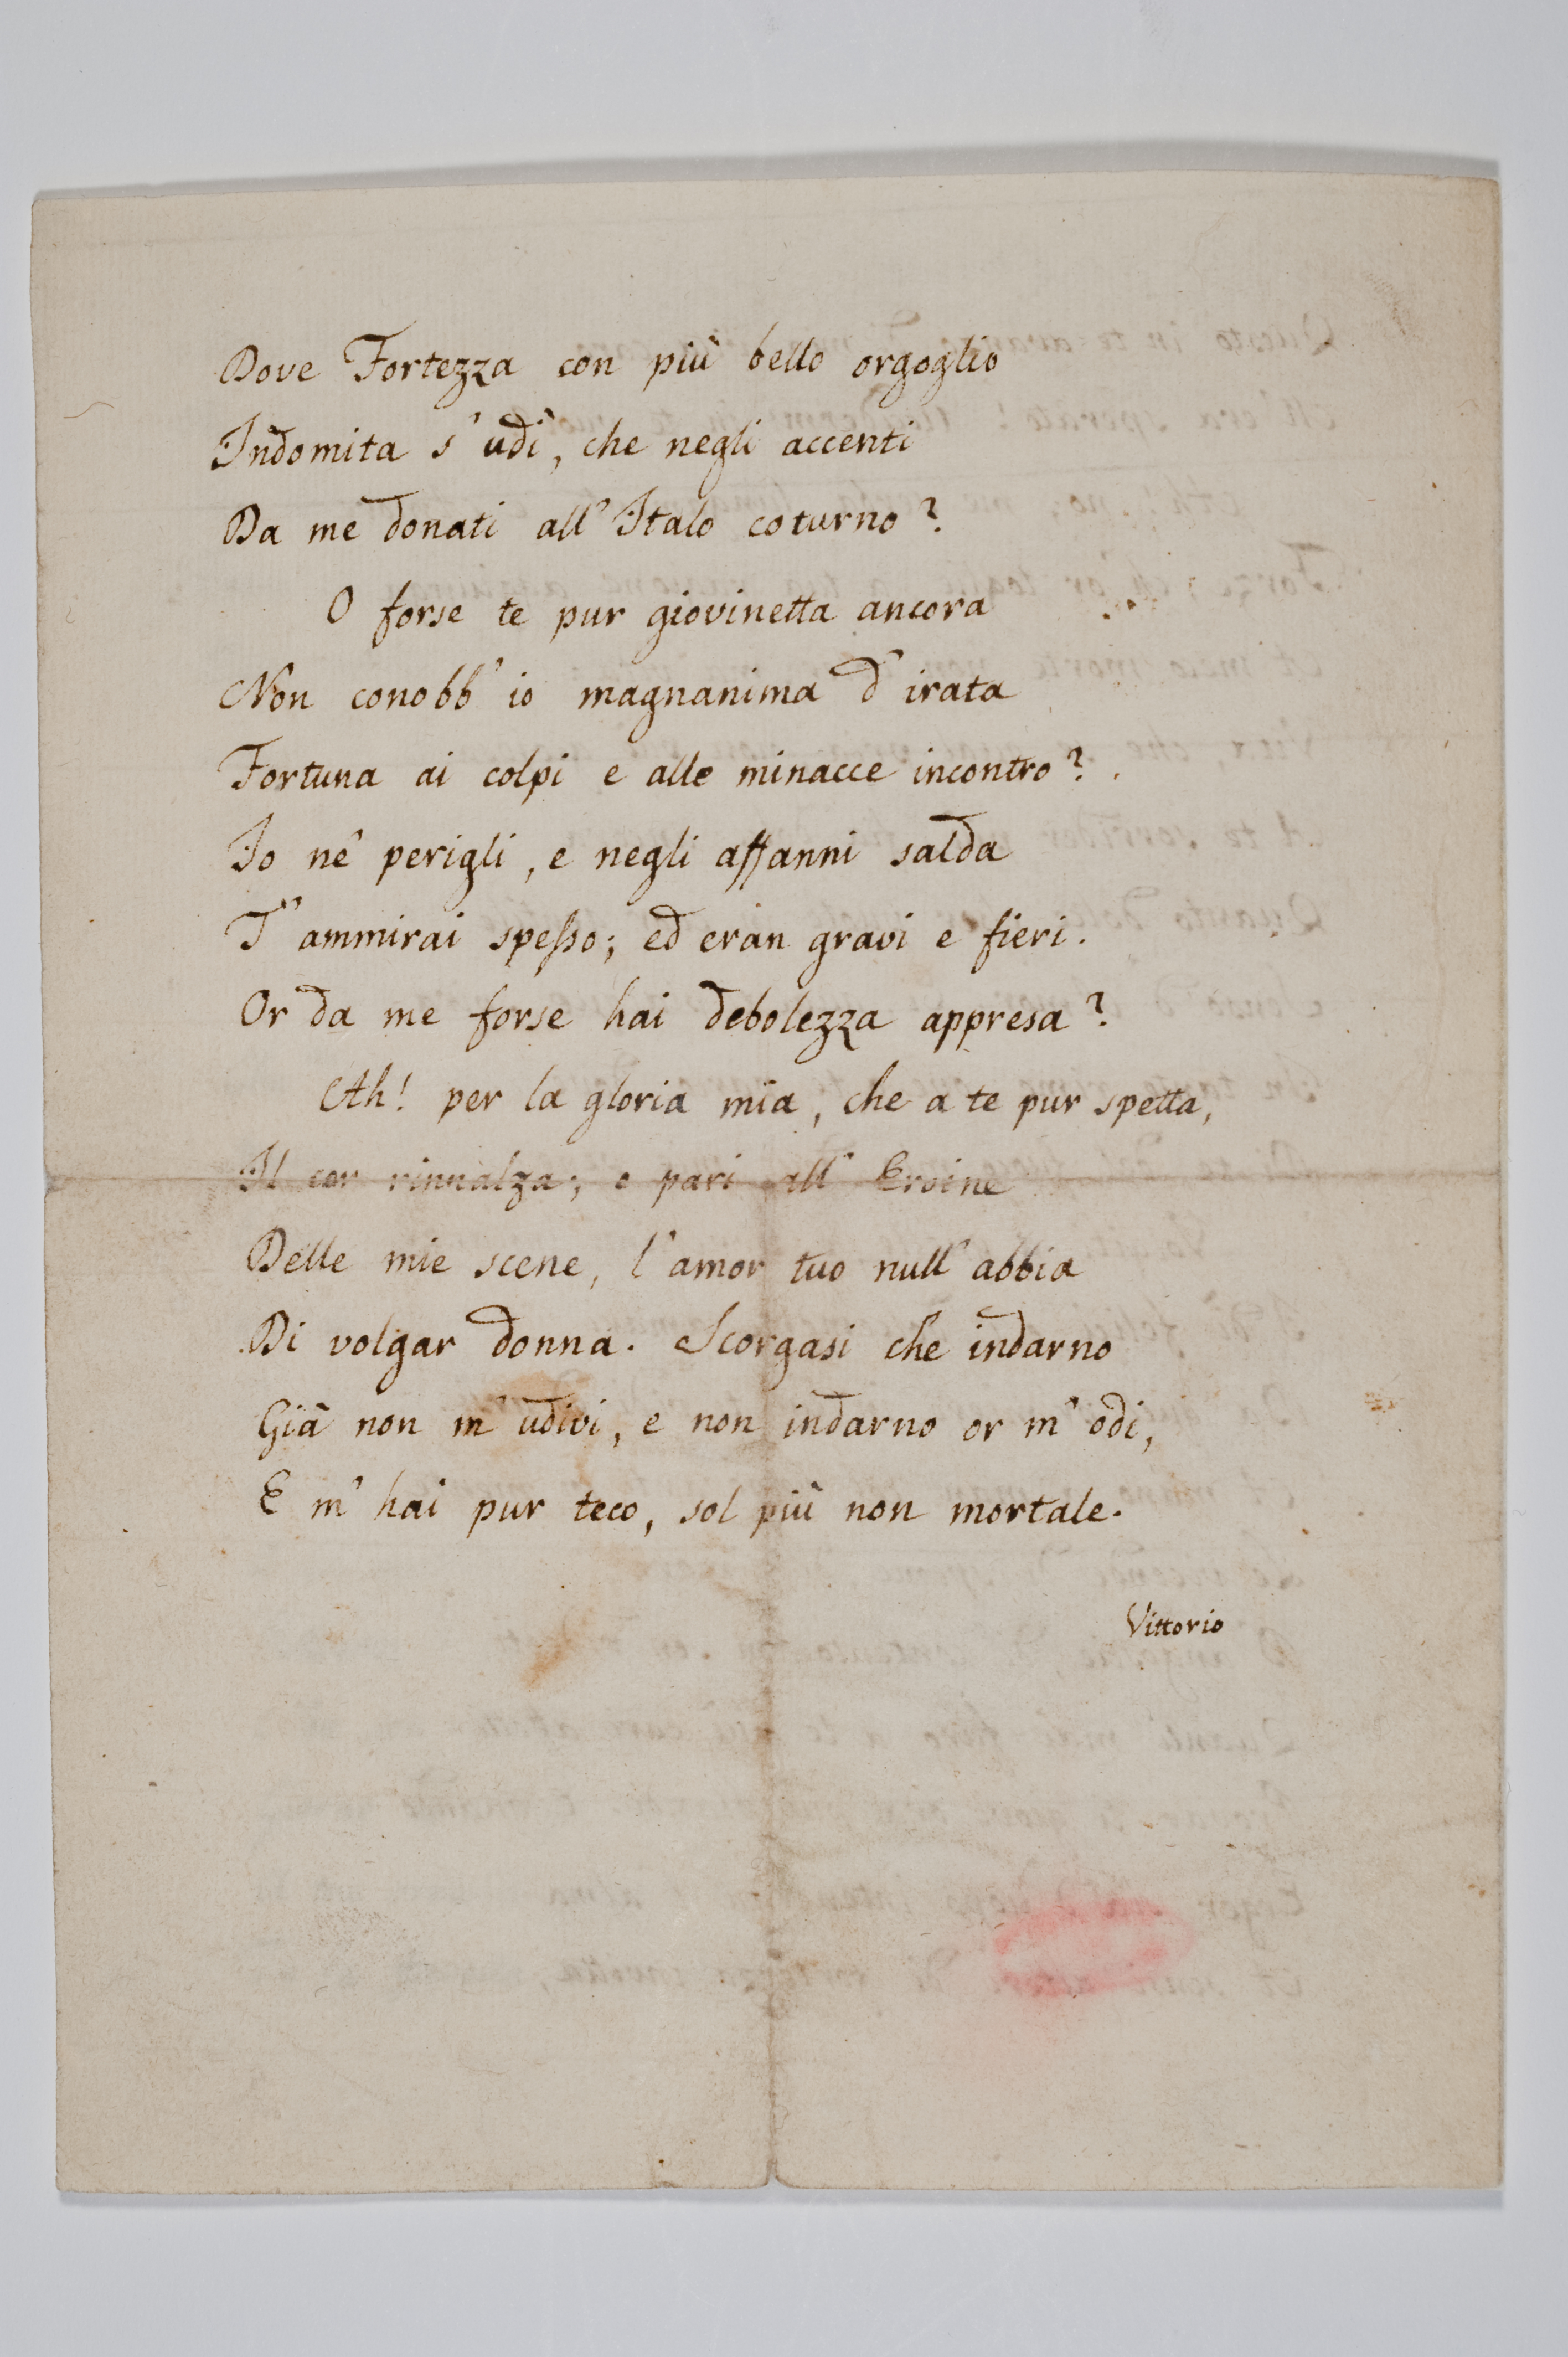 Dove Fortezza con più bello orgoglio
Indomita s' udì, che negli accenti
Da me donati all' Italo coturno?
O forse te pur giovinetta ancora
Non conobb' io magnanima d' irata
Fortuna ai colpi e alle minacce incontro?
Io ne' perigli, e negli affanni salda
T' ammirai spesso; ed eran gravi e fieri.
Or da me forse hai debolezza appresa?
Ah! per la gloria mia, che a te pur spetta,
Il cor rinnalza; e pari all' Eroine
Delle mie scene, l' amor tuo null' abbia
Di volgar donna. Scorgasi che indarno
Già non m' udivi, e non indarno or m' odi,
E m' hai pur teco, sol più non mortale.
Vittorio